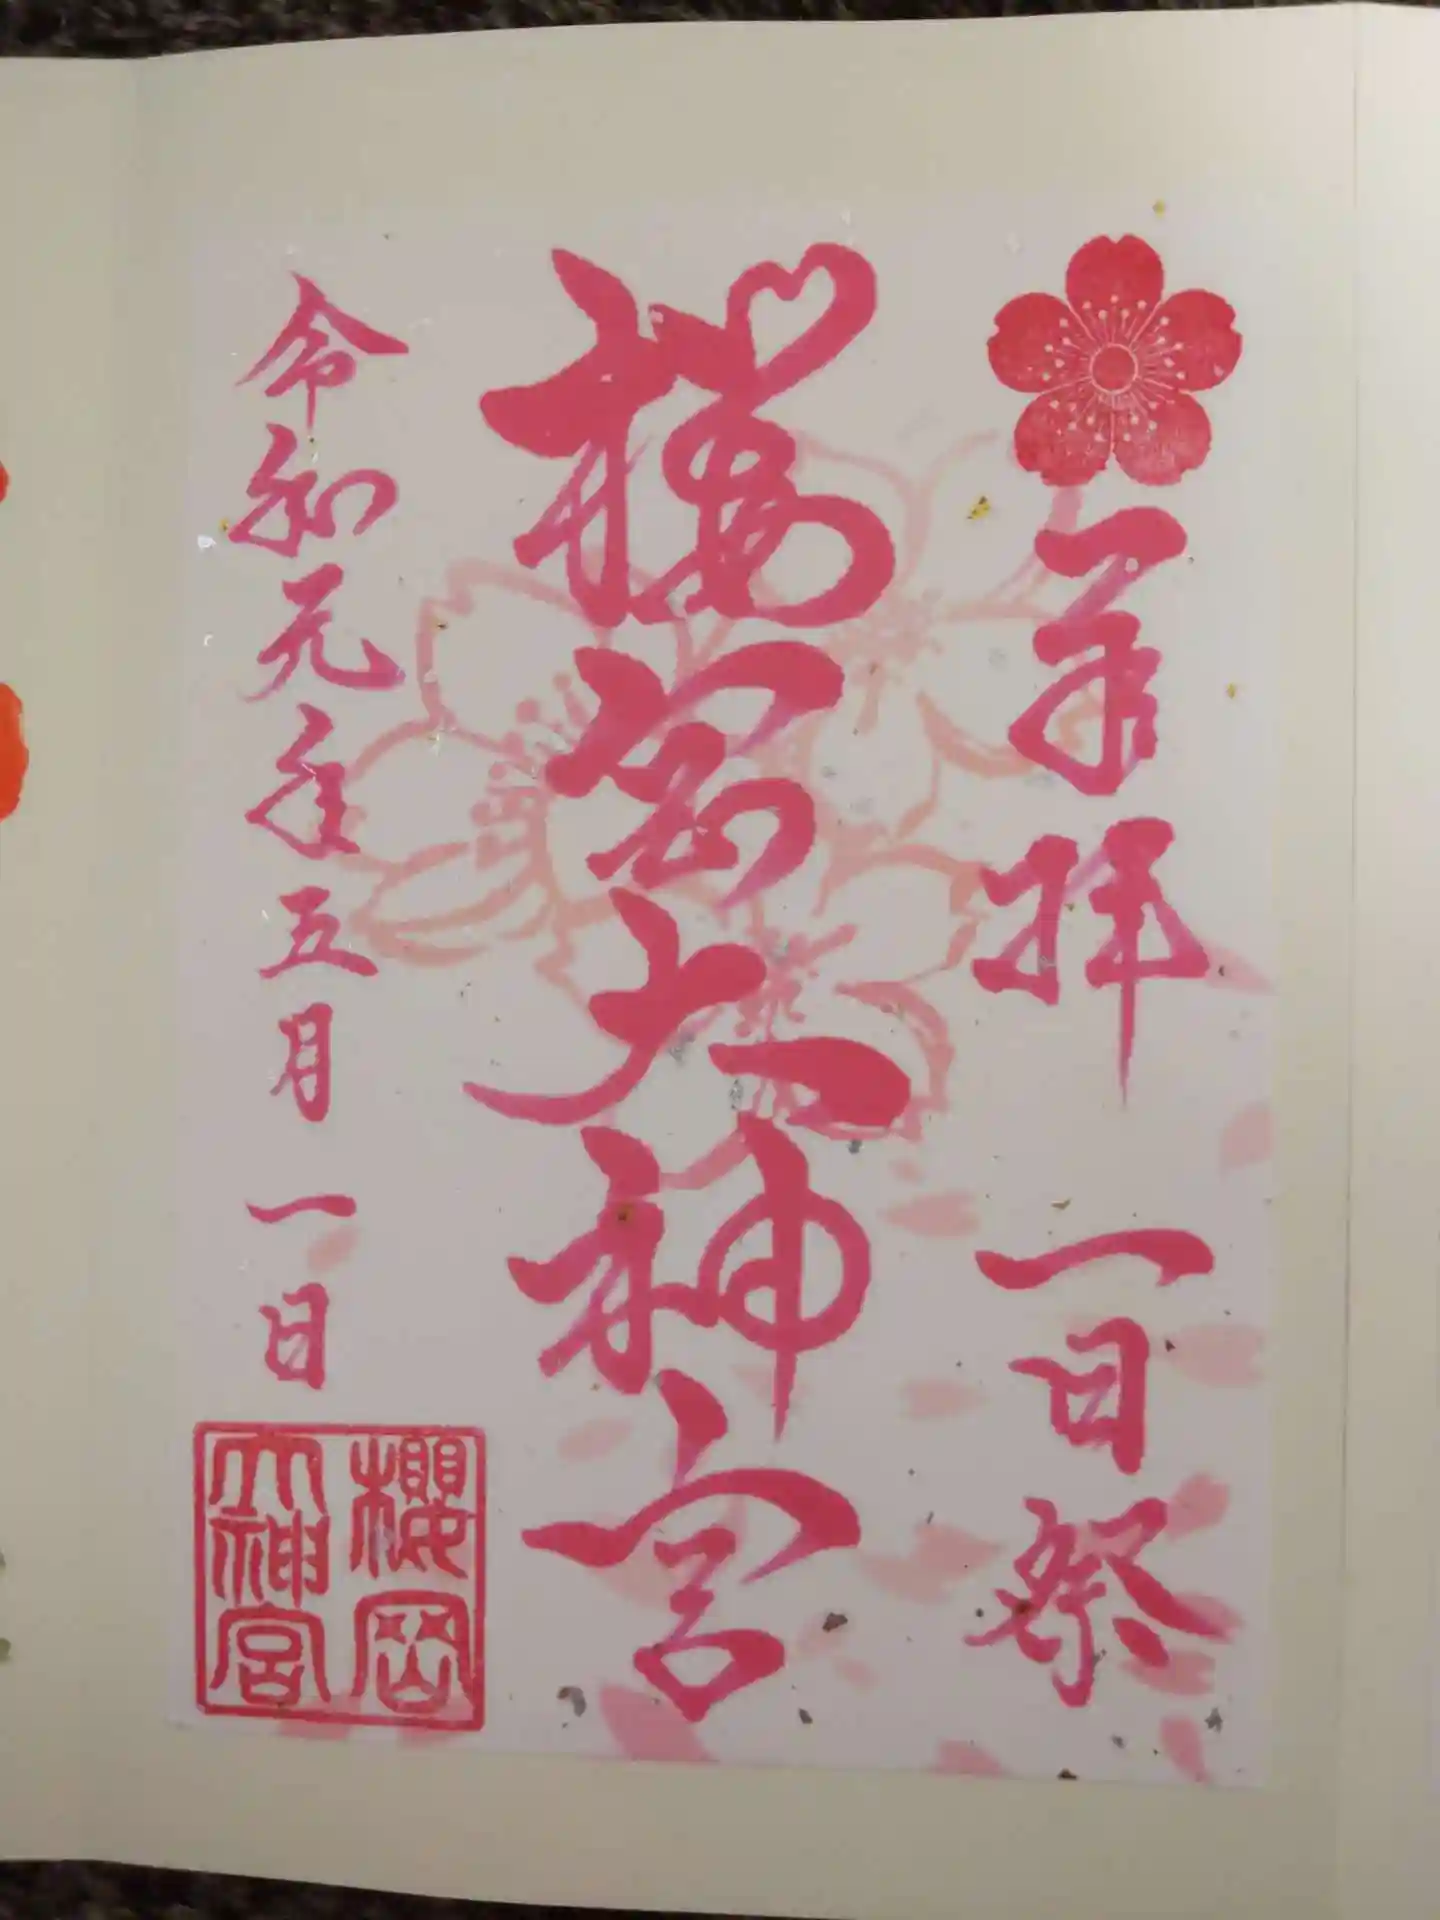 奉拝 一日祭
櫻岡大神宮
令和元年五月一日
櫻岡
大神宮